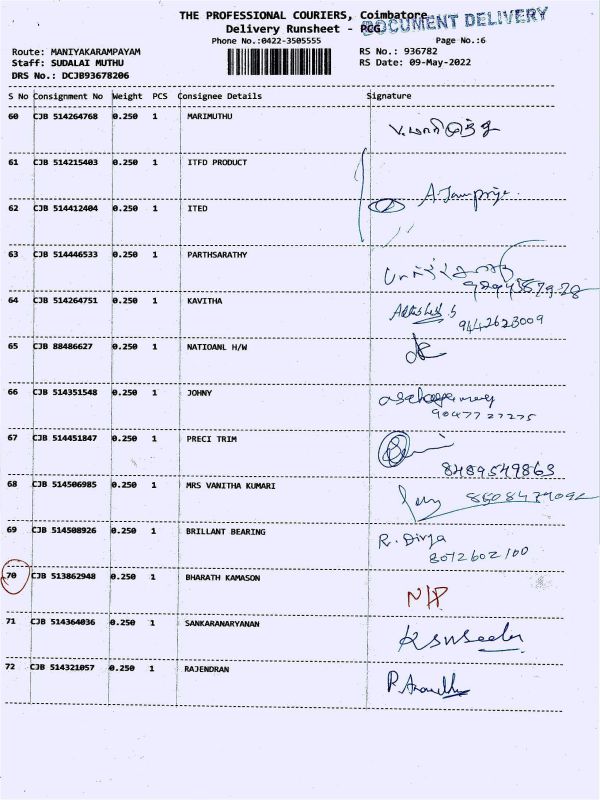 THE PROFESSIONAL COURIERS, Coimbatore
DOCUMENT DELIVERY
Delivery Runsheet - PCG
Phone No.:0422-3505555 Page No.:6
Route: MANIYAKARAMPAYAM RS No.: 936782
Staff: SUDALAI MUTHU RS Date: 09-May-2022
DRS No.: DCJB93678206
S No Consignment No Weight PCS Consignee Details Signature
60 CJB 514264768 0.250 1 MARIMUTHU
61 CJB 514215403 0.250 1 ITFD PRODUCT
62 CJB 514412404 0.250 1 ITED
63 CJB 514446533 0.250 1 PARTHSARATHY
64 CJB 514264751 0.250 1 KAVITHA
9442623009
65 CJB 88486627 0.250 1 NATIOANL H/W
66 CJB 514351548 0.250 1 JOHNY
9047727275
67 CJB 514451847 0.250 1 PRECI TRIM
8489549863
68 CJB 514506985 0.250 1 MRS VANITHA KUMARI
69 CJB 514508926 0.250 1 BRILLANT BEARING
R. Divya
8072602100
70 CJB 513862948 0.250 1 BHARATH KAMASON
N/P
71 CJB 514364036 0.250 1 SANKARANARYANAN
72 CJB 514321057 0.250 1 RAJENDRAN